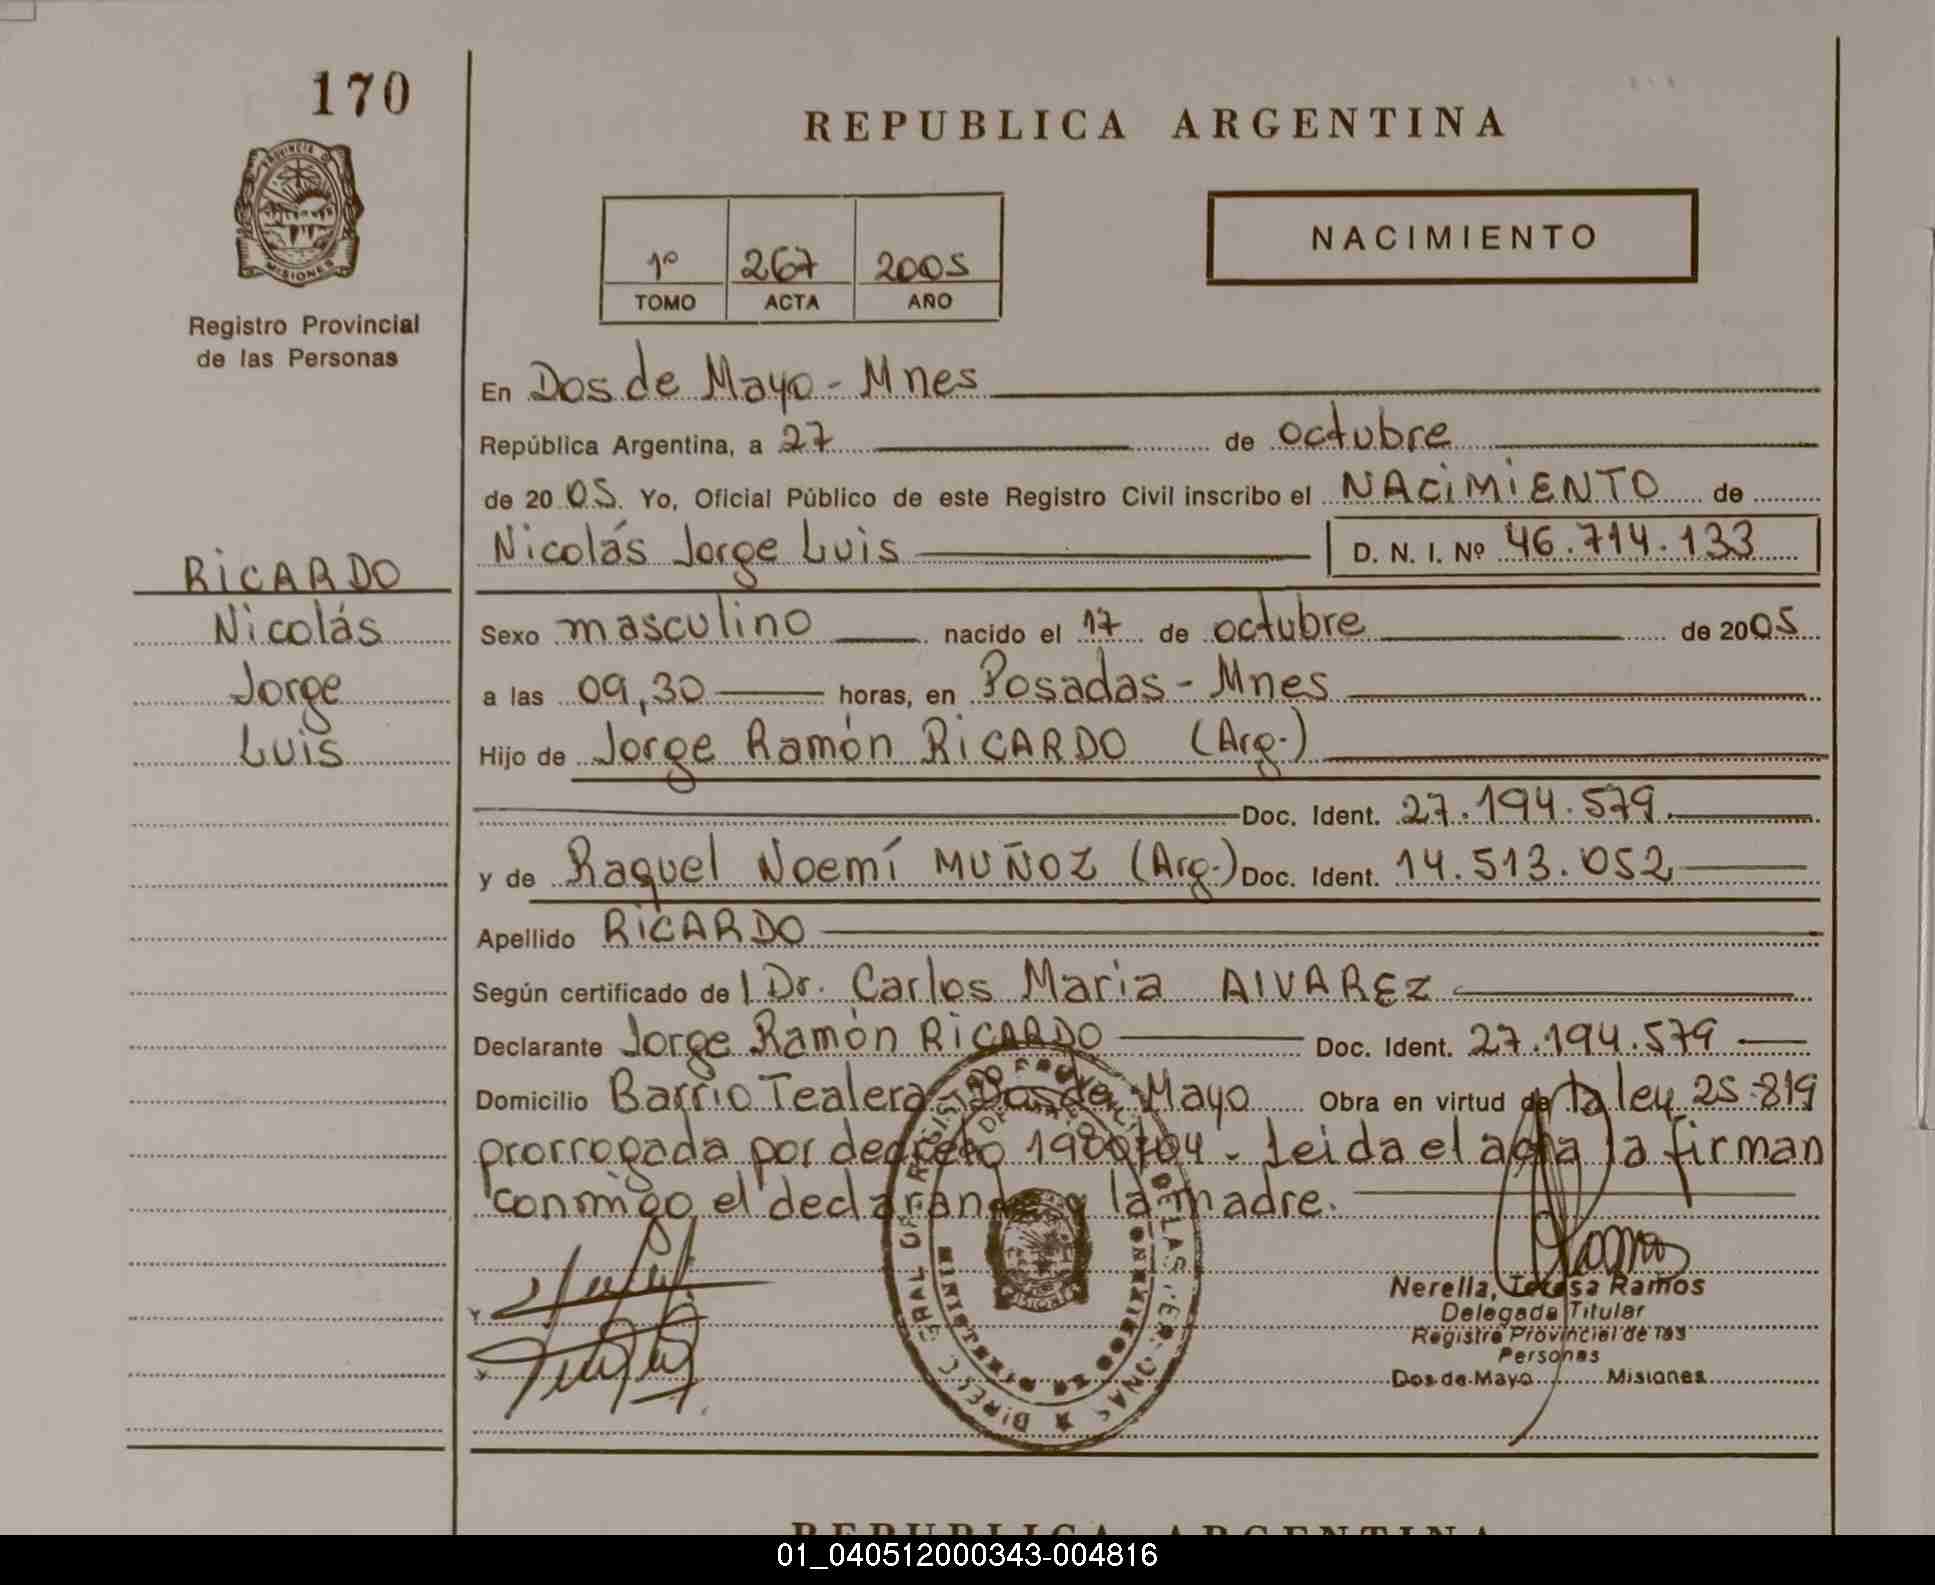 170
REPUBLICA ARGENTINA
PROVINCIA DE
MISIONES
Registro Provincial
de las Personas
1º 267 2005
TOMO ACTA AÑO
NACIMIENTO
En Dos de Mayo - Mnes
República Argentina, a 27 de octubre
de 2005. Yo, Oficial Público de este Registro Civil inscribo el NACIMIENTO de
Nicolás Jorge Luis D. N. I. Nº 46.714.133
RICARDO
Nicolás
Jorge
Luis
Sexo masculino nacido el 17 de octubre de 2005
a las 09,30 horas, en Posadas - Mnes
Hijo de Jorge Ramón RICARDO (Arg.)
Doc. Ident. 27.194.579
y de Raquel Noemí MUÑOZ (Arg.) Doc. Ident. 14.513.052
Apellido RICARDO
Según certificado de l Dr. Carlos Maria AlVAREZ
Declarante Jorge Ramón RICARDO Doc. Ident. 27.194.579
Domicilio Barrio Tealera - Dos de Mayo Obra en virtud de la ley 25.819
prorrogada por decreto 1980/04 - Leida el acta la firman
conmigo el declarante y la madre.
Nerella, Teresa Ramos
Delegada Titular
Registro Provincial de las
Personas
Dos de Mayo Misiones
REPUBLICA ARGENTINA
01_040512000343-004816